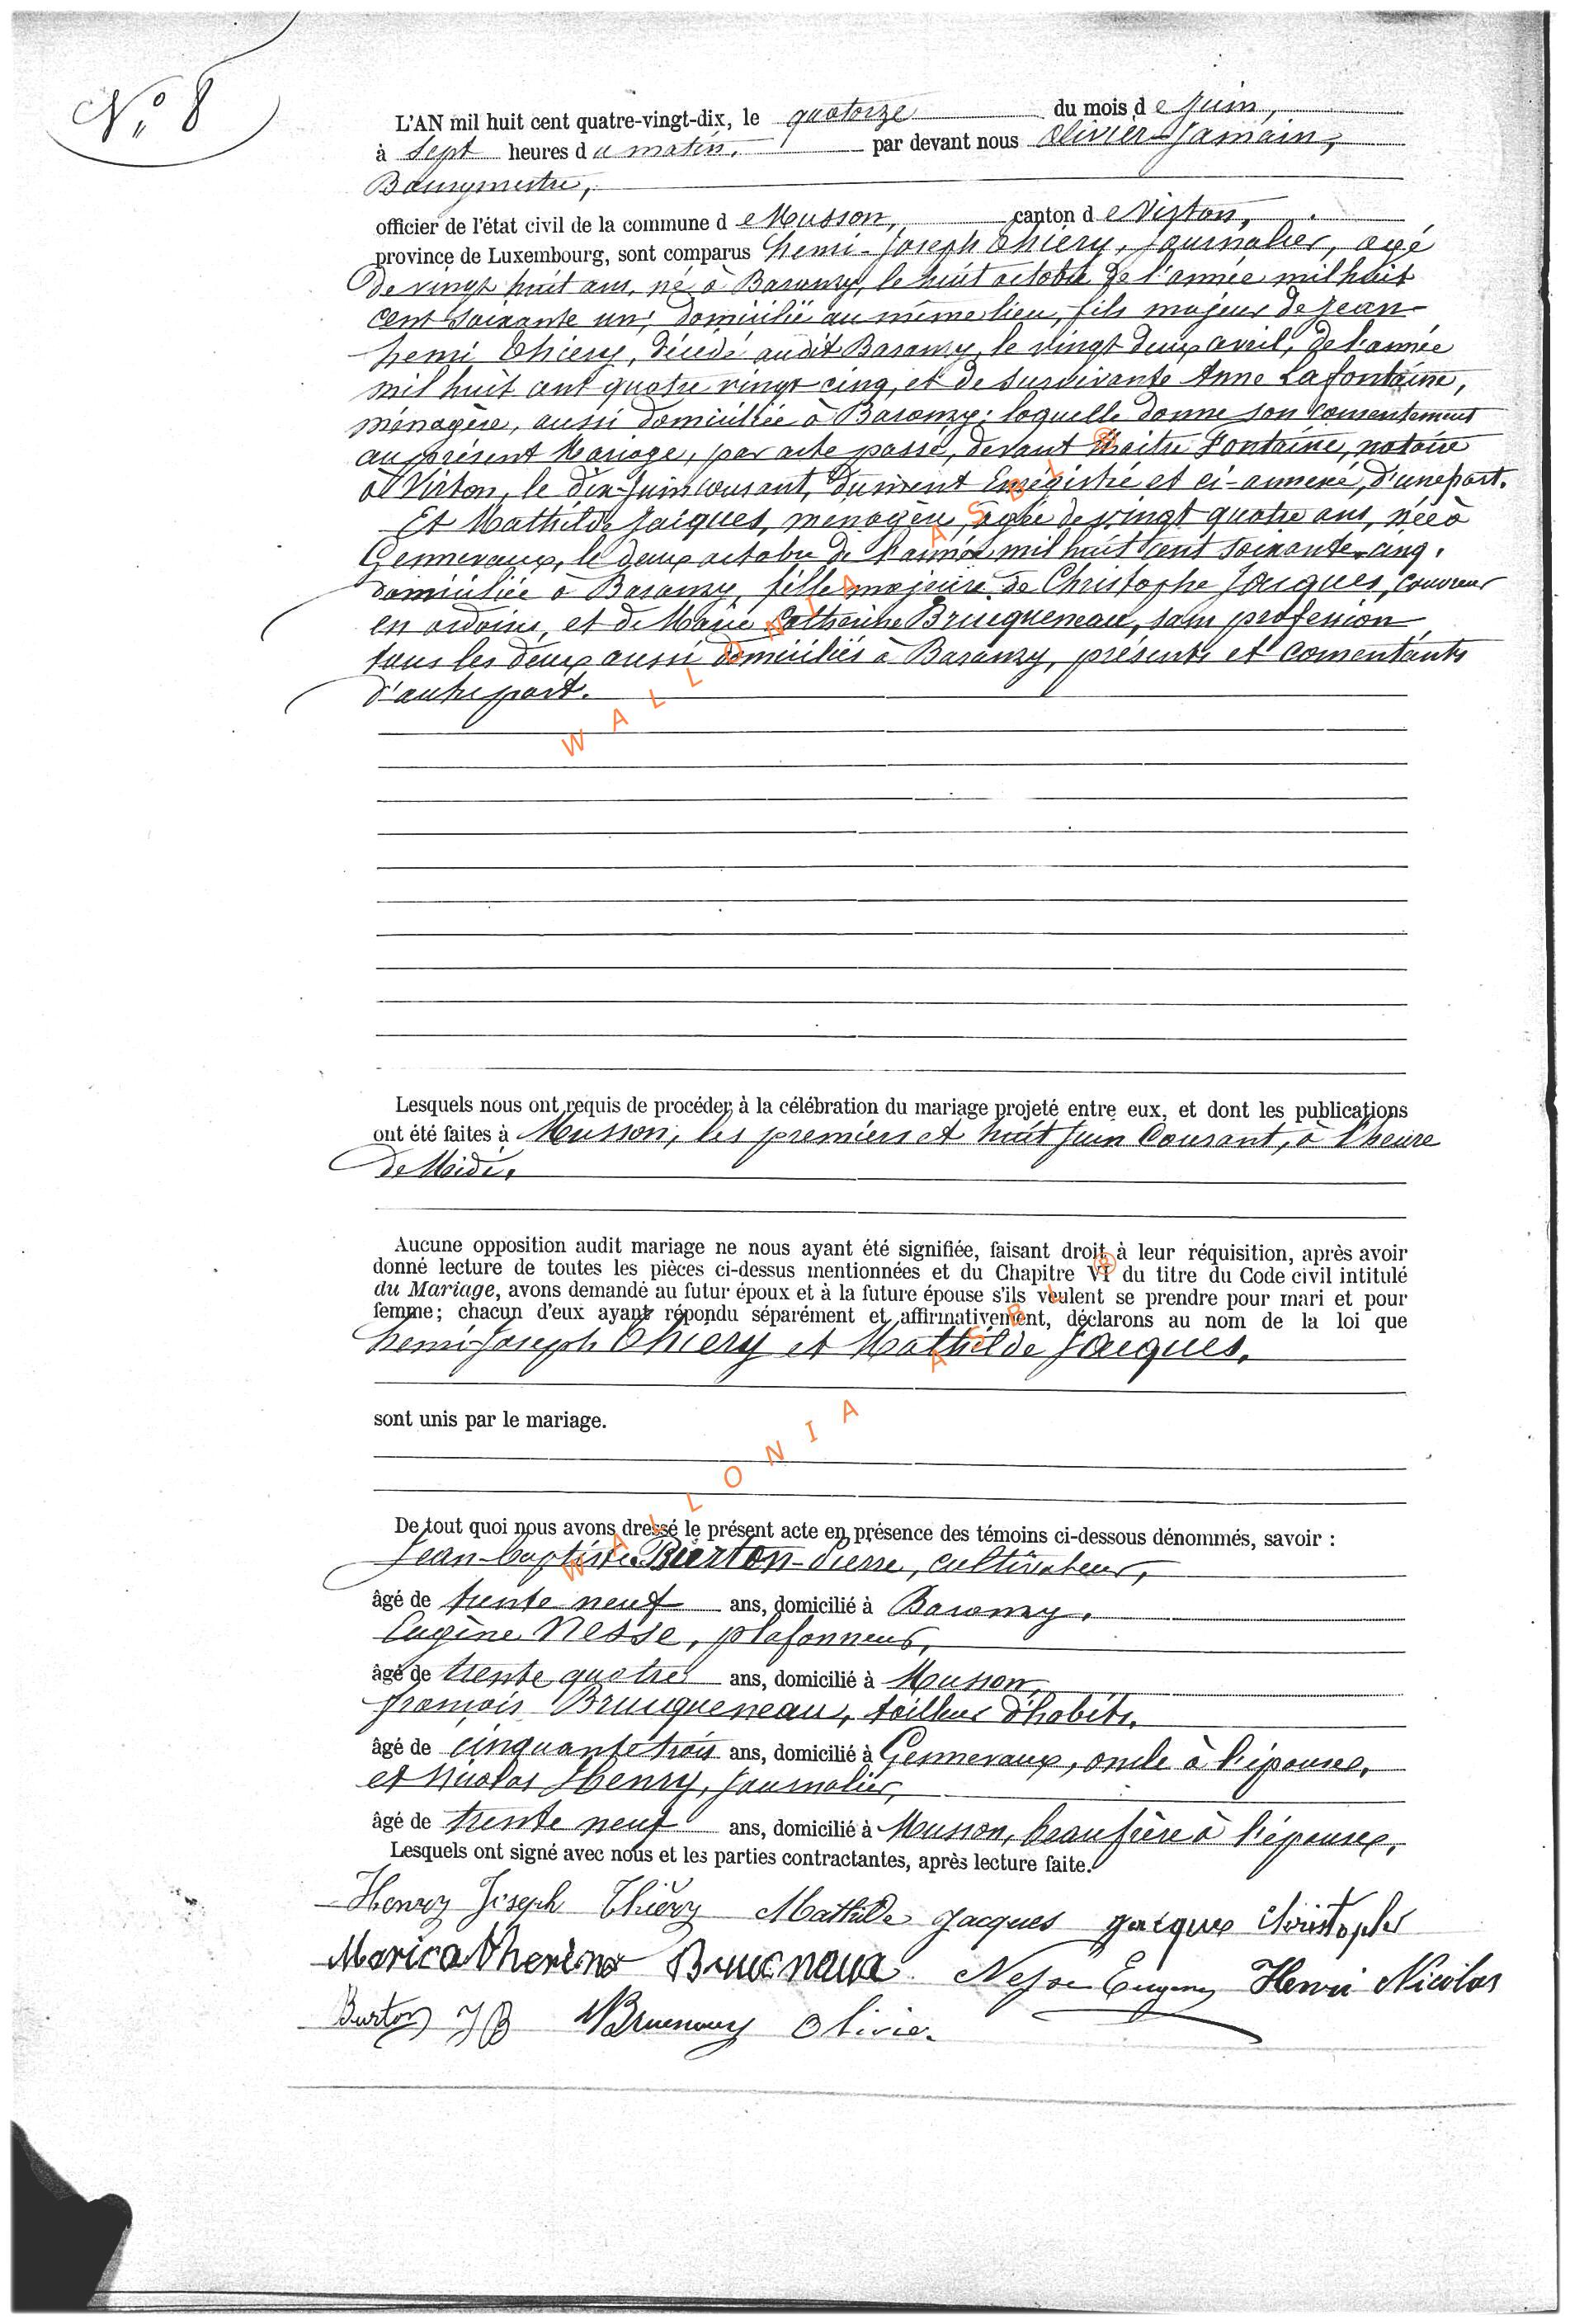 N° 8
L'AN mil huit cent quatre-vingt-dix, le quatorze du mois de Juin,
à Sept heures du matin, par devant nous Olivier Jamain,
Bourgmestre,
officier de l'état civil de la commune de Musson, canton de Virton,
province de Luxembourg, sont comparus henri-Joseph Thiéry, Journalier, agé
de vingt huit ans, né à Baranzy, le huit octobre de l'année mil huit
cent soixante un, domicilié au même lieu, fils majeur de Jean-
henri Thiery, décédé audit Baranzy, le vingt deux avril, de l'année
mil huit cent quatre vingt cinq, et de survivante Anne Lafontaine,
ménagère, aussi domiciliée à Baranzy; laquelle donne son consentement
au présent Mariage, par acte passé, devant Maitre Fontaine, notaire
à Virton, le dix Juin courant, dument Enrégistré et ci-annexé, d'une part.
Et Mathilde Jacques, ménagère, agée de vingt quatre ans, née à
Gennevaux, le deux octobre de l'année mil huit cent soixante-cinq,
domiciliée à Baranzy, fille majeure de Christophe Jacques, couvreur
en ardoises, et de Marie Catherine Brucqueneau, sans profession
tous les deux aussi domiciliés à Baranzy, présents et consentants
d'autre part.
Lesquels nous ont requis de procéder à la célébration du mariage projeté entre eux, et dont les publications
ont été faites à Musson, les premiers et huit Juin Courant, à l'heure
de Midi.
Aucune opposition audit mariage ne nous ayant été signifiée, faisant droit à leur réquisition, après avoir
donné lecture de toutes les pièces ci-dessus mentionnées et du Chapitre VI du titre du Code civil intitulé
du Mariage, avons demandé au futur époux et à la future épouse s'ils veulent se prendre pour mari et pour
femme; chacun d'eux ayant répondu séparément et affirmativement, déclarons au nom de la loi que
henri Joseph Thiery et Mathilde Jacques.
sont unis par le mariage.
De tout quoi nous avons dressé le présent acte en présence des témoins ci-dessous dénommés, savoir :
Jean-baptiste Burton-Pierre, cultivateur,
âgé de trente neuf ans, domicilié à Baranzy.
Eugène Nesse, plafonneur,
âgé de trente quatre ans, domicilié à Musson,
françois Brucqueneau, tailleur d'habits,
âgé de cinquante trois ans, domicilié à Gennevaux, oncle à l'épouse,
et Nicolas Henry, Journalier,
âgé de trente neuf ans, domicilié à Musson, beau frère à l'épouse,
Lesquels ont signé avec nous et les parties contractantes, après lecture faite.
Henry Joseph Thiéry Mathilde Jacques Jacques Christophe
Maricatherine Brucnaux Nesse Eugene Henri Nicolas
Burton JB Olivier
WALLONIA ASBL ®
WALLONIA ASBL ®